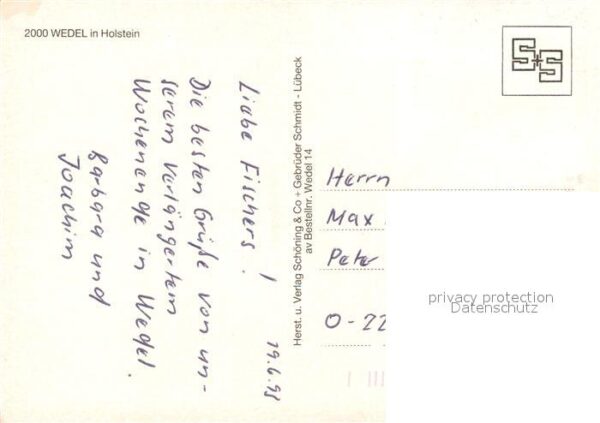 2000 WEDEL in Holstein
S+S
19.6.93
Liebe Fischers!
Die besten Grüße von un-
serem verlängertem
Wochenende in Wedel.
Barbara und
Joachim
Herst. u. Verlag Schöning & Co + Gebrüder Schmidt - Lübeck
av Bestellnr. Wedel 14
Herrn
Max
Peter
O-22
privacy protection
Datenschutz